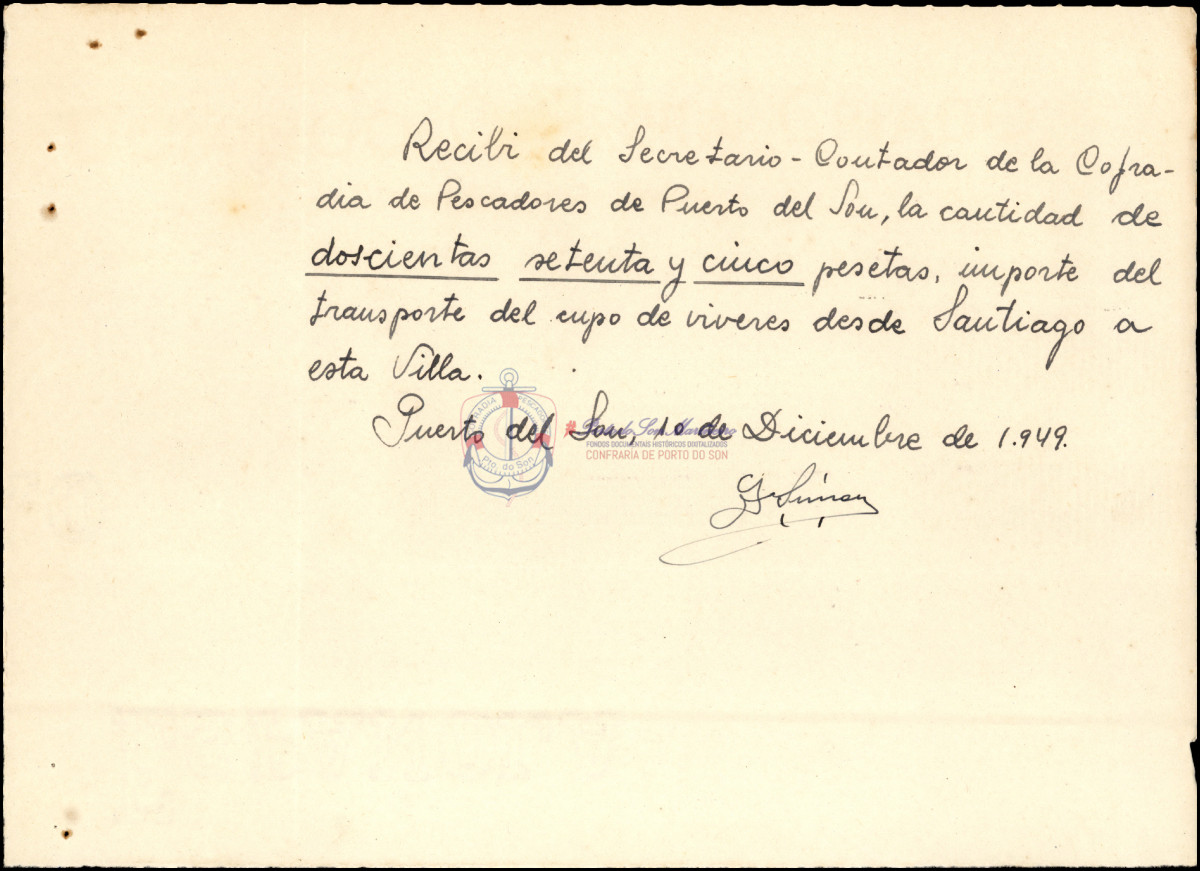 Recibi del Secretario-Contador de la Cofra-
dia de Pescadores de Puerto del Son, la cantidad de
doscientas setenta y cinco pesetas, importe del
transporte del cupo de viveres desde Santiago a
esta Villa.
Puerto del Son, 10 de Diciembre de 1.949.
PESCADOR
Pto. do Son
FONDOS DOCUMENTAIS HISTÓRICOS DIXITALIZADOS
CONFRARÍA DE PORTO DO SON